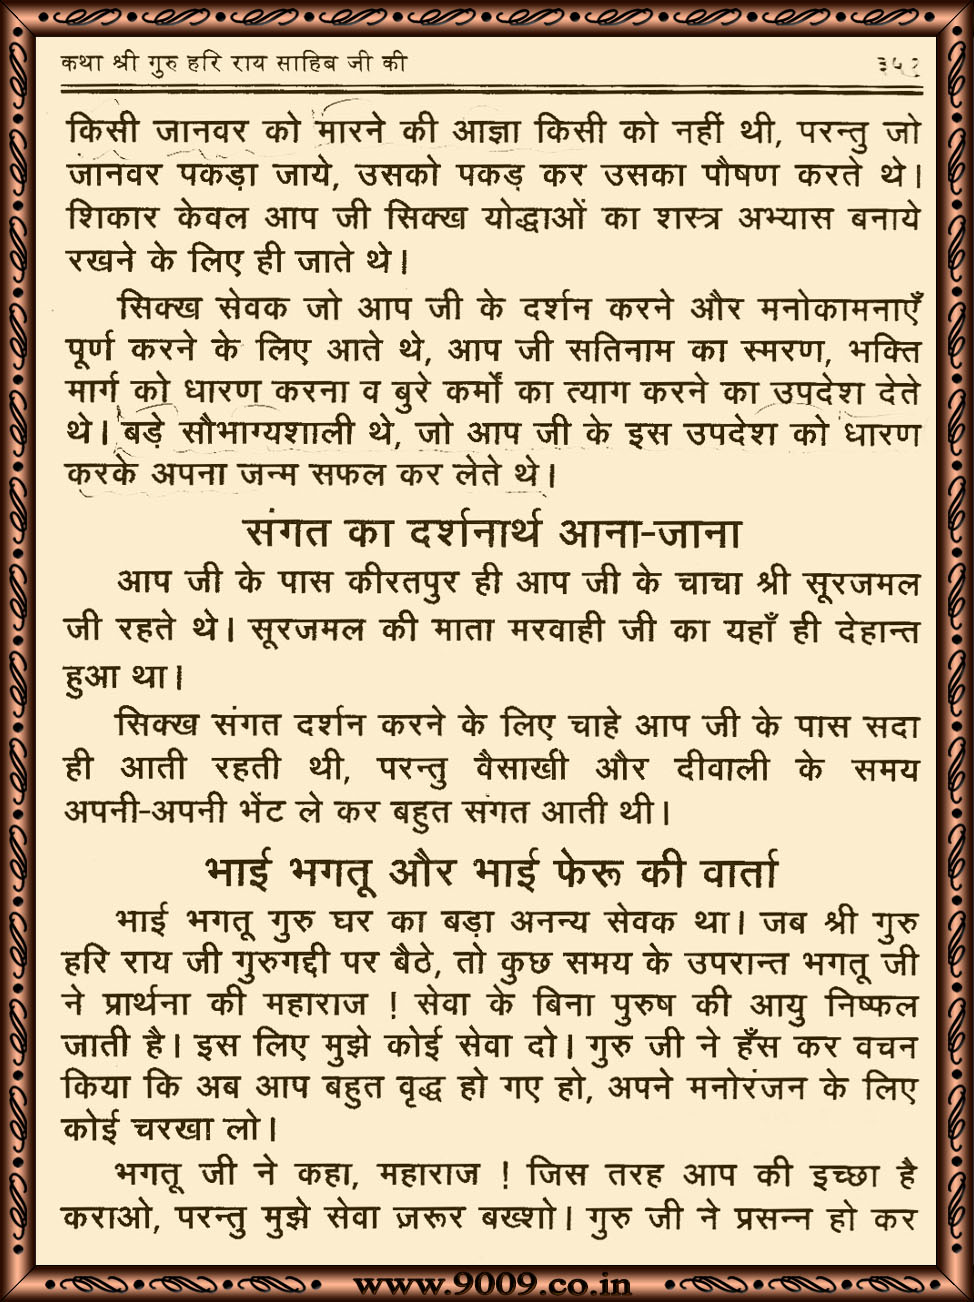 कथा श्री गुरु हरि राय साहिब जी की
किसी जानवर को मारने की आज्ञा किसी को नहीं थी, परन्तु जो
जानवर पकड़ा जाये, उसको पकड़ कर उसका पौषण करते थे।
शिकार केवल आप जी सिक्ख योद्धाओं का शस्त्र अभ्यास बनाये
रखने के लिए ही जाते थे।
सिक्ख सेवक जो आप जी के दर्शन करने और मनोकामनाएँ
पूर्ण करने के लिए आते थे, आप जी सतिनाम का स्मरण, भक्ति
मार्ग को धारण करना व बुरे कर्मों का त्याग करने का उपदेश देते
थे। बड़े सौभाग्यशाली थे, जो आप जी के इस उपदेश को धारण
करके अपना जन्म सफल कर लेते थे।
संगत का दर्शनार्थ आना-जाना
आप जी के पास कीरतपुर ही आप जी के चाचा श्री सूरजमल
जी रहते थे। सूरजमल की माता मरवाही जी का यहाँ ही देहान्त
हुआ था।
सिक्ख संगत दर्शन करने के लिए चाहे आप जी के पास सदा
ही आती रहती थी, परन्तु वैसाखी और दीवाली के समय
अपनी-अपनी भेंट ले कर बहुत संगत आती थी।
भाई भगतू और भाई फेरू की वार्ता
भाई भगतू गुरु घर का बड़ा अनन्य सेवक था। जब श्री गुरु
हरि राय जी गुरुगद्दी पर बैठे, तो कुछ समय के उपरान्त भगतू जी
ने प्रार्थना की महाराज ! सेवा के बिना पुरुष की आयु निष्फल
जाती है। इस लिए मुझे कोई सेवा दो। गुरु जी ने हँस कर वचन
किया कि अब आप बहुत वृद्ध हो गए हो, अपने मनोरंजन के लिए
कोई चरखा लो।
भगतू जी ने कहा, महाराज ! जिस तरह आप की इच्छा है
कराओ, परन्तु मुझे सेवा ज़रूर बख्शो। गुरु जी ने प्रसन्न हो कर
www.9009.co.in